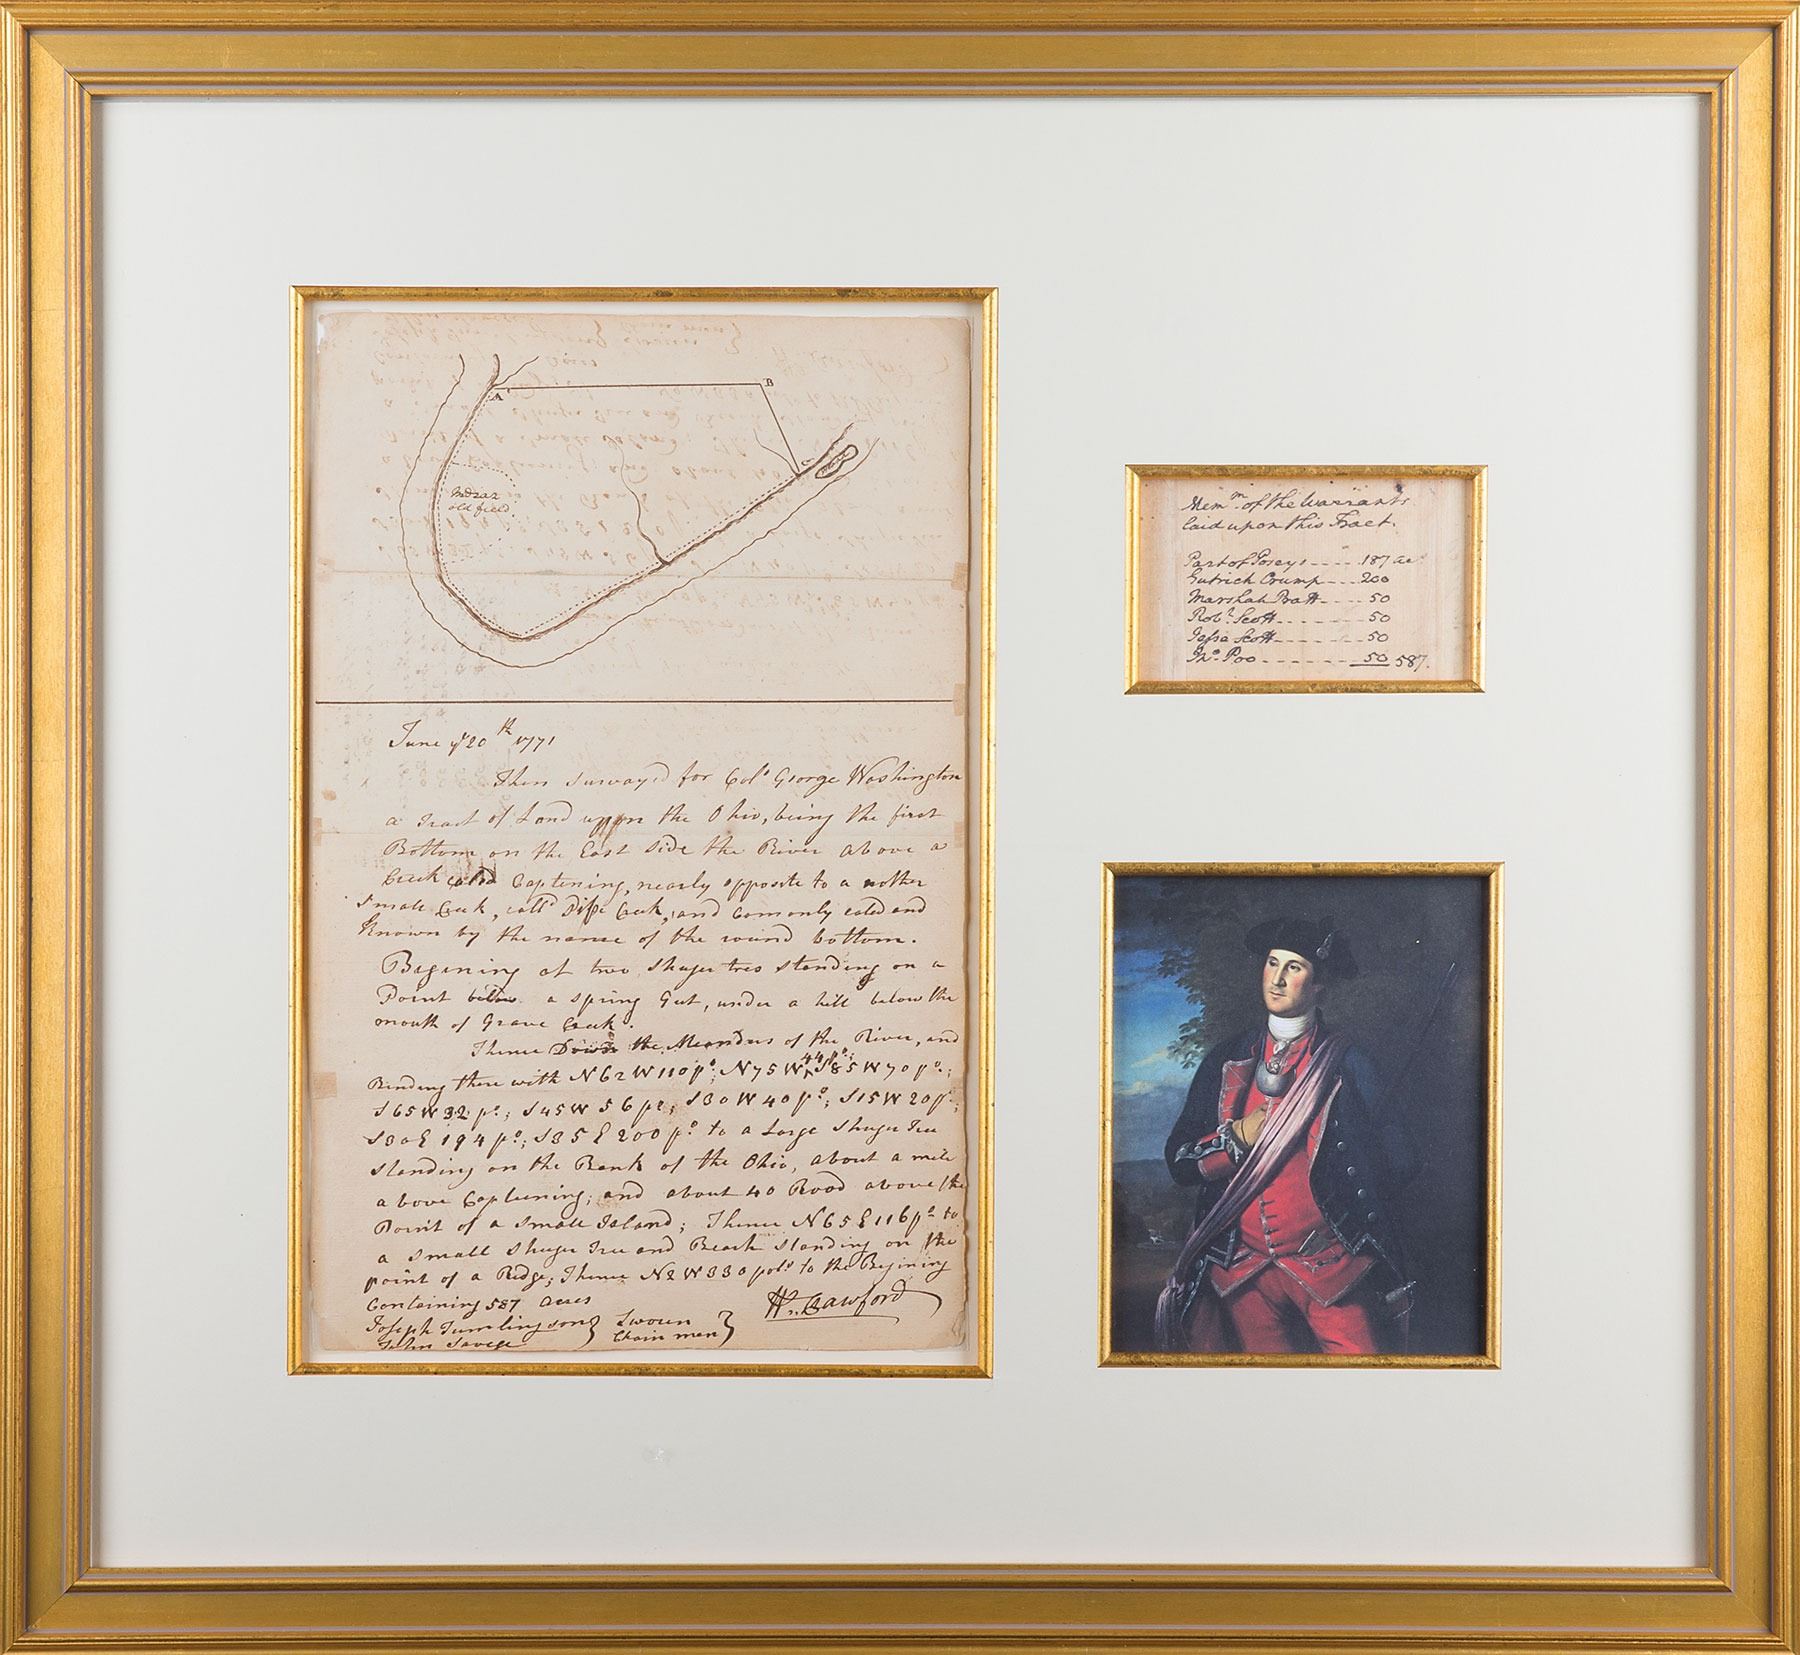 A
B
C
Indian
old field
June ye 20th 1771
Then survayd for Colo George Washington
a Tract of Land uppon the Ohio, being the first
Bottom on the East side the River above a
Creek caled Captening, nearly opposite to a nother
Small Creek, calld Pipe Creek, and Comonly caled and
Known by the name of the round bottom.
Begining at two Shuger tres standing on a
Point below a spring Gut, under a hill below the
mouth of Grave Creek.
Thence Down the Meanders of the River, and
Binding there with N62W110po; N75W 44po; S85W70po;
S65W32po; S45W56po; S30W40po; S15W20po;
S30E194po; S35E200po to a Large Shuger Tree
standing on the Bank of the Ohio, about a mile
above Capteening; and about 40 Rood above the
Point of a Small Island; Thence N65E116po to
a Small Shuger Tree and Beach standing on the
point of a Ridge; Thence N2W330pols to the Begining
Containing 587 acres
W. Crawford
Joseph Tumlingson } Sworn
John Savege } Chain men
Memm of the Warrants
laid upon this Tract.
Part of Poseys ---- 187 acs
Gutrich Crump --- 200
Marshal Pratt --- 50
Robt Scott ------ 50
Jessa Scott ------ 50
Thos Poo ------ 50 587.